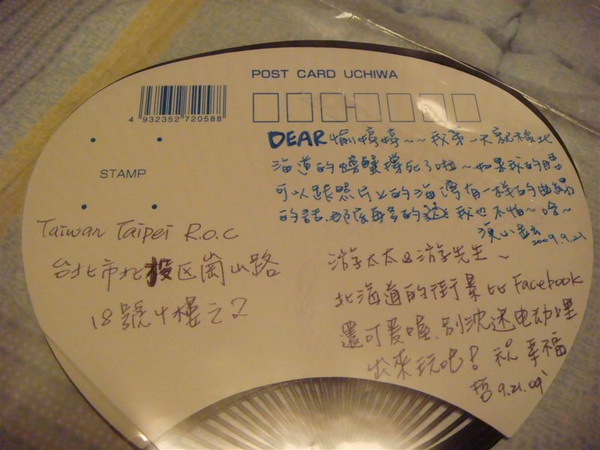 POST CARD UCHIWA
4 932352 720588
STAMP
DEAR 愉婷婷~~我第一天就被北
海道的螃蟹撐死了啦~如果我的
可以跟照片上的海灣有一樣的曲線
的話,那麼再多的 我也不怕~哈~
2009.9.21
Taiwan Taipei R.O.C
台北市北投区崗山路
18號十樓之2
游太太&游先生~
北海道的街景比Facebook
還可爱喔,別沈迷电动哩
出來玩吧!祝幸福
哲 9.21.09'